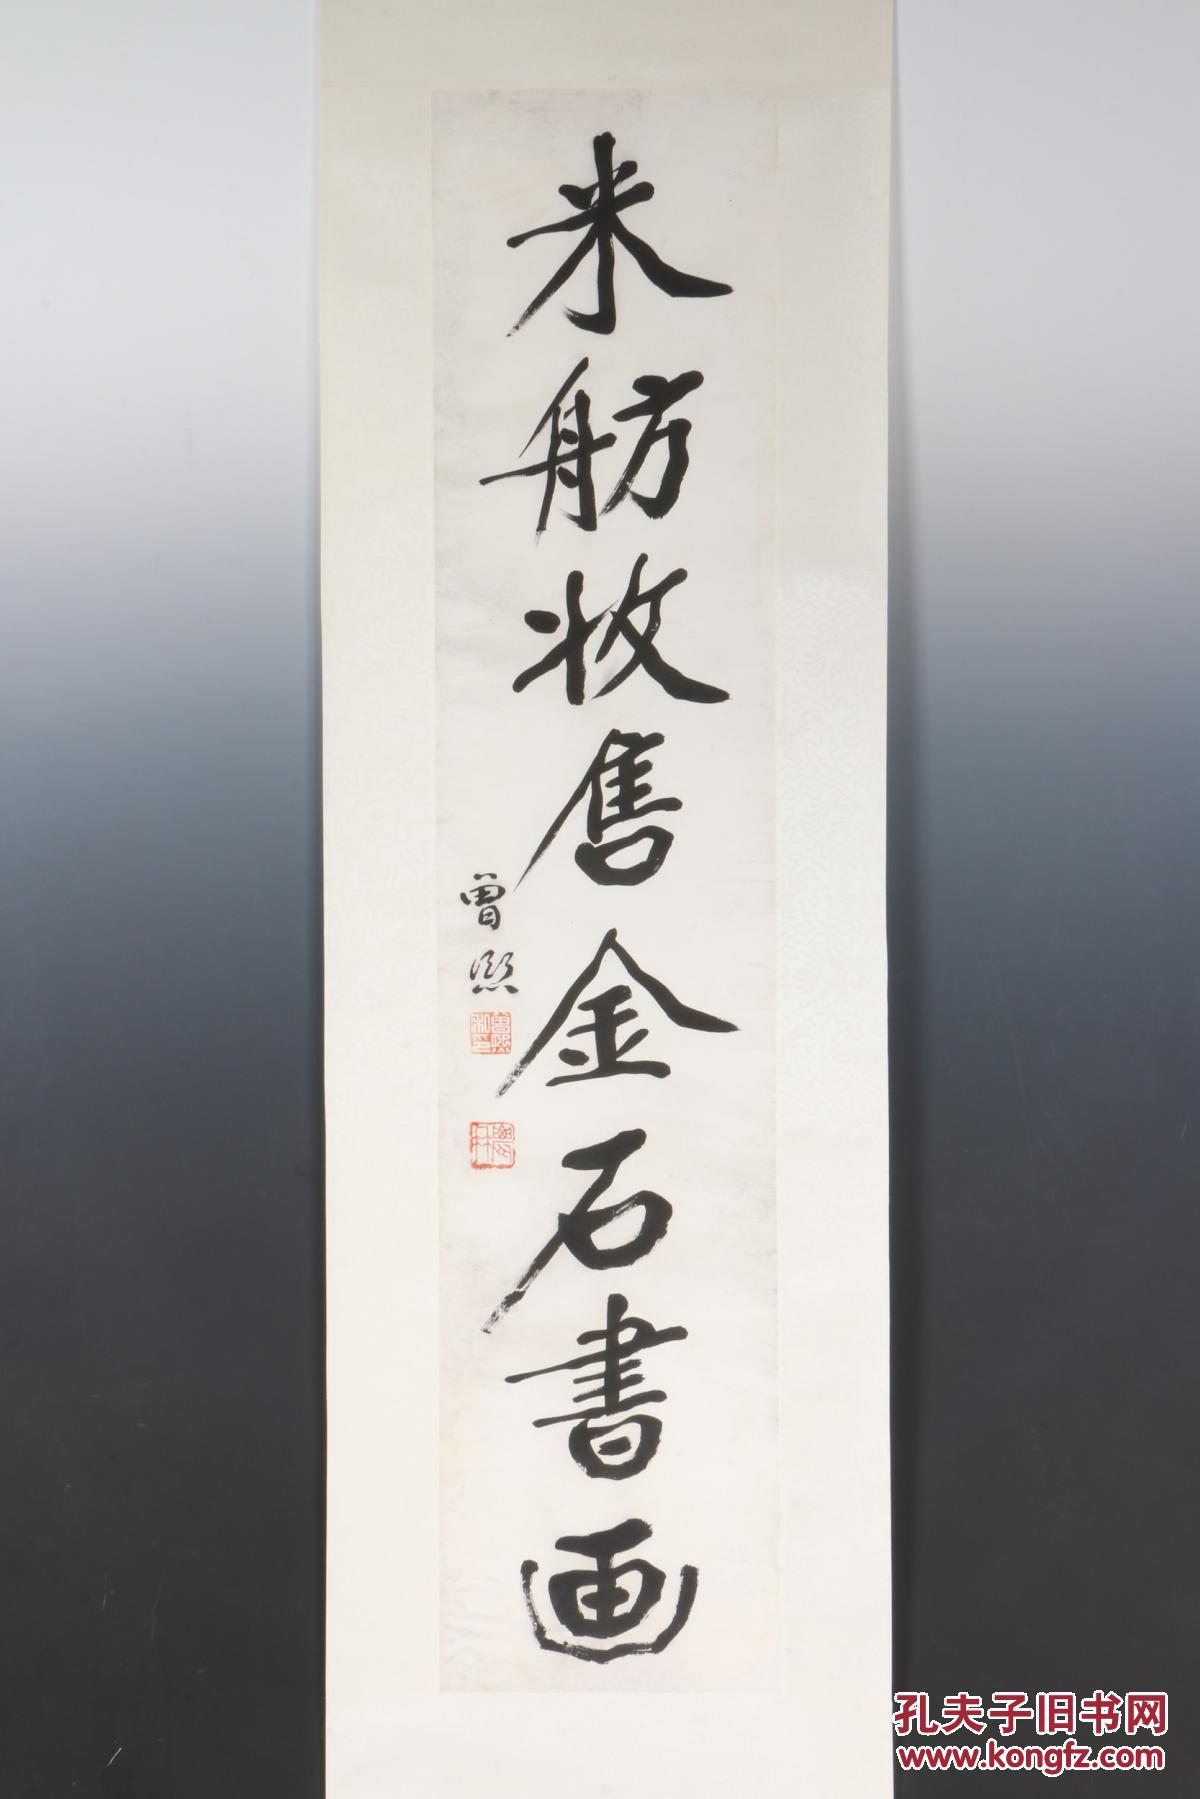 米舫收售金石書画
曾熙
孔夫子旧书网
www.kongfz.com